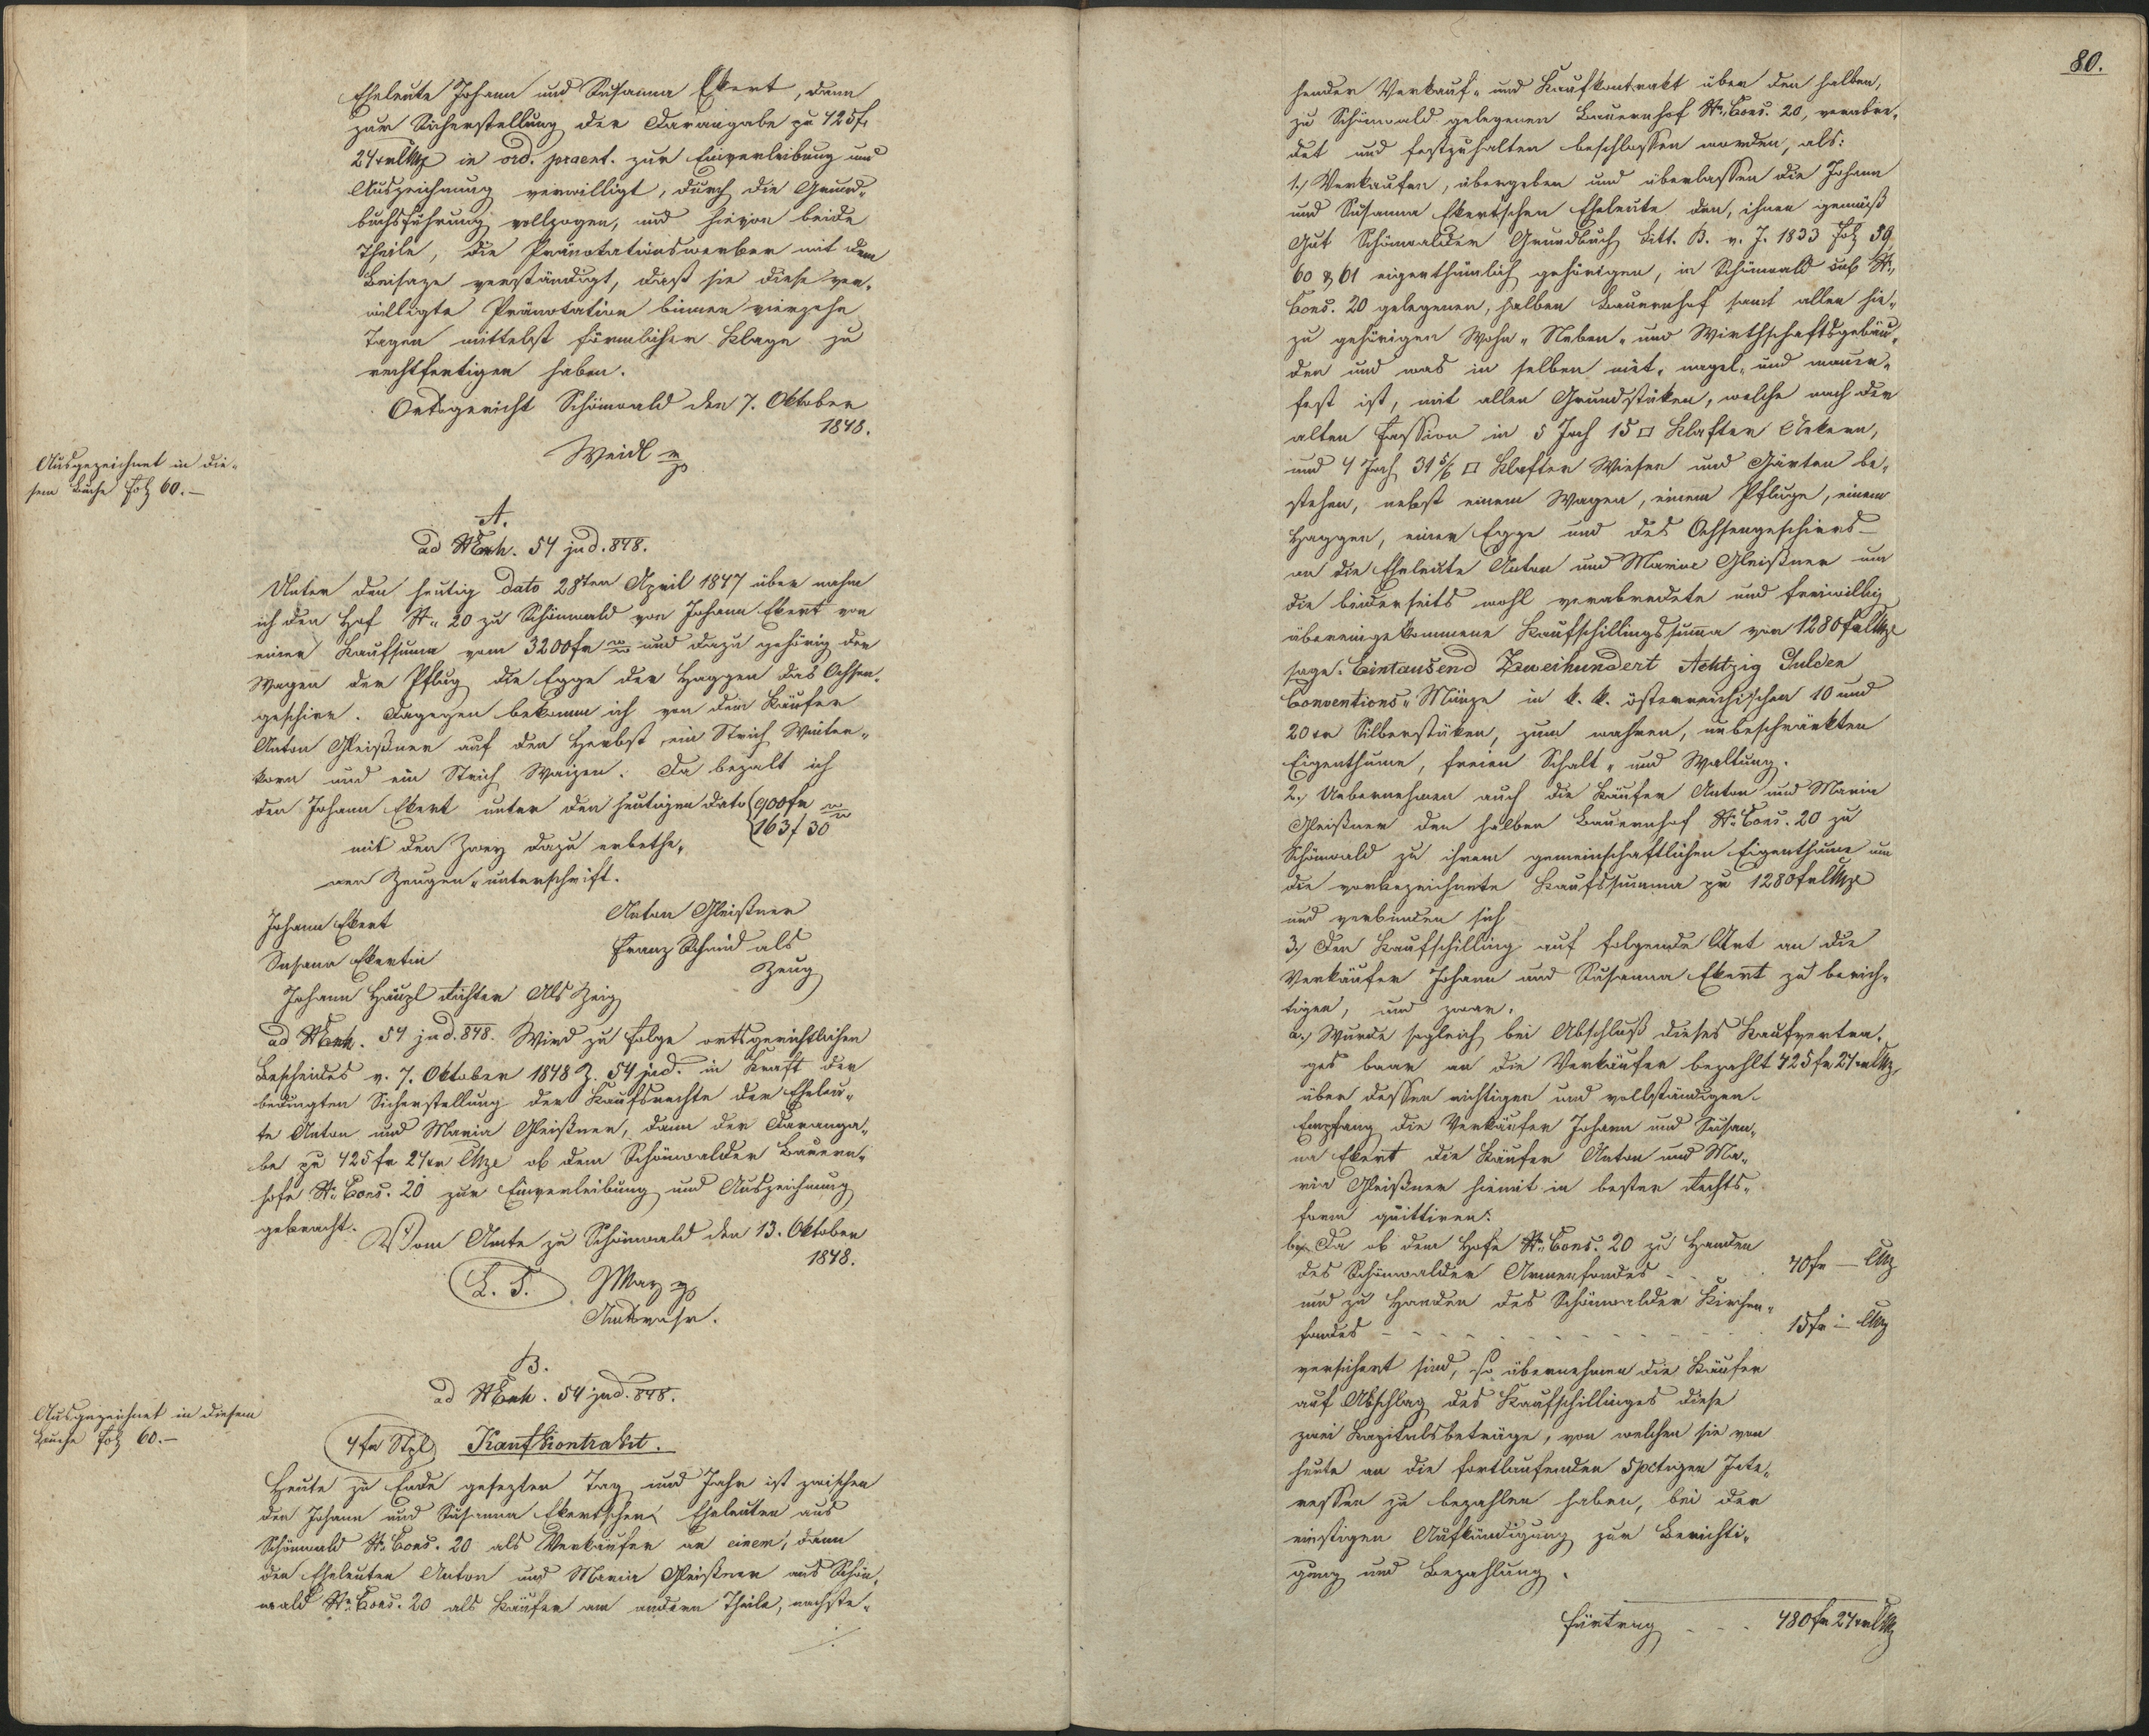 Eheleute Johann und Susanna Ekert, dann
zur Sicherstellung der Darangabe pr 425 f
24 xr CMze in ord. praent. zur Einverleibung und
Auszeichnung verwilligt, durch die Grund-
buchsführung vollzogen, und hievon beide
Theile, die Pränotationswerber mit dem
Beisaze verständigt, daß sie diese ver-
willigte Pränotation binnen vierzehn
Tagen mittelst förmlicher Klage zu
rechtfertigen haben.
Ortsgericht Schönwald den 7. Oktober
1848.
Weidl mp
Ausgezeichnet in die-
sem Buche Fol. 60.-
A.
ad NExh. 54 jud. 848.
Unter den heutig dato 28ten April 1847 über nahm
ich den Hof No 20 zu Schönwald von Johann Ekert von
einer Kaufsuma vom 3200 fr W W und dazu gehörig der
Wagen der Pflug die Egge der Haggen das Ochsen-
geschirr. Dagegen bekomm ich von dem Käufer
Anton Gleißner auf den Herbst ein Strich Winter-
korn und ein Strich Waizen. Da bezalt ich
den Johann Ekert unter den heutigen dato 900 fr W W
163 f 30
mit den Zwey dazu erbethe-
nen Zeugen-unterschrift.
Johann Ekert Anton Gleißner
Susana Ekertin Franz Schmid als
Zeug
Johann Häuzl Richter Als Zeig
ad NExh. 54 jud. 848. Wird zu Folge ortsgerichtlichen
Bescheides v. 7. Oktober 1848 Z. 54 jud. in Kraft der
bedungten Sicherstellung der Kaufsrechte der Eheleu-
te Anton und Maria Gleißner, dann der Daranga-
be pr 425 fr 24 xr CMze ob dem Schönwalder Bauern-
hofe No Cons. 20 zur Einverleibung und Auszeichnung
gebracht.
Vom Amte zu Schönwald den 13. Oktober
1848.
L. S. May mp
Amtsverw.
B.
ad NExh. 54 jud. 848.
Ausgezeichnet in diesem
Buche Fol. 60.-
4 fr Stpl Kaufkontrakt.
Heute zu Ende gesezten Tag und Jahr ist zwischen
den Johann und Susanna Ekertschen Eheleuten aus
Schönwald No Cons. 20 als Verkäufer an einem, dann
den Eheleuten Anton und Maria Gleißner aus Schön-
wald No Cons. 20 als Käufer am andern Theile, nachste-
80.
hender Verkauf- und Kaufkontrakt über den halben,
zu Schönwald gelegenen Bauernhof No Cons. 20, verabre-
det und festzuhalten beschlossen worden, als:
1.) Verkaufen, übergeben und überlassen die Johann
und Susanna Ekertschen Eheleute den, ihnen gemäß
Gut Schönwalder Grundbuch Litt. B. v. J. 1833 Fol. 59,
60 & 61 eigenthümlich gehörigen, in Schönwald sub No
Cons. 20 gelegenen, halben Bauernhof samt allen hie-
zu gehörigen Wohn- Neben- und Wirthschaftsgebäu-
den und was in selben niet- nagel- und mauer-
fest ist, mit allen Grundstüken, welche nach der
alten Fassion in 5 Joch 15 □ Klafter Aekern,
und 4 Joch 31 5/6 □ Klafter Wiesen und Gärten be-
stehen, nebst einem Wagen, einem Pfluge, einem
Haggen, einer Egge und des Ochsengeschirrs
an die Eheleute Anton und Maria Gleißner um
die beiderseits wohl verabredete und freiwillig
übereingekommene Kaufschillingssuma von 1280 fr CMze
sage: Eintausend Zweihundert Achtzig Gulden
Conventions-Münze in k. k. österreichischen 10 und
20 xr Silberstüken, zum wahren, unbeschränkten
Eigenthume, freien Schalt- und Waltung.
2.) Uebernehmen auch die Käufer Anton und Maria
Gleißner den halben Bauernhof No Cons. 20 zu
Schönwald zu ihrem gemeinschaftlichen Eigenthume um
die vorbezeichnete Kaufssumma pr 1280 fr CMze
und verbinden sich
3.) Den Kaufschilling auf folgende Art an die
Verkäufer Johann und Susanna Ekert zu berich-
tigen, und zwar:
a.) Wurde sogleich bei Abschluß dieses Kaufvertra-
ges baar an die Verkäufer bezahlt 425 fr 24 xr CMz,
über dessen richtigen und vollständigen
Empfang die Verkäufer Johann und Susan-
na Ekert die Käufer Anton und Ma-
ria Gleißner hiemit in bester Rechts-
form quittiren.
b.) Da ob dem Hofe No Cons. 20 zu Handen
des Schönwalder Armenfondes - . . 40 fr — CMz
und zu Handen des Schönwalder Kirchen-
fondes - - - - - - - - 15 fr — CMz
versichert sind, so übernehmen die Käufer
auf Abschlag des Kaufschillinges diese
zwei Kapitalsbeträge, von welchen sie von
heute an die fortlaufenden 5 pctigen Inte-
ressen zu bezahlen haben, bei der
einstigen Aufkündigung zur Berichti-
gung und Bezahlung.
Fürtrag - - - 480 fr 24 xr CMz